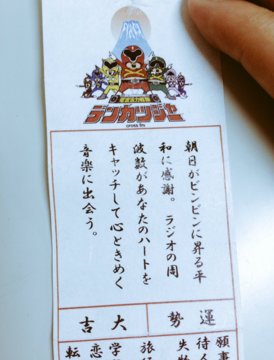 デンカツジャー
cross fm
朝日がビンビンに昇る平
和に感謝。ラジオの周
波数があなたのハートを
キャッチして心ときめく
音楽に出会う。
運勢
大吉
願事
待
失
旅
学
恋
転